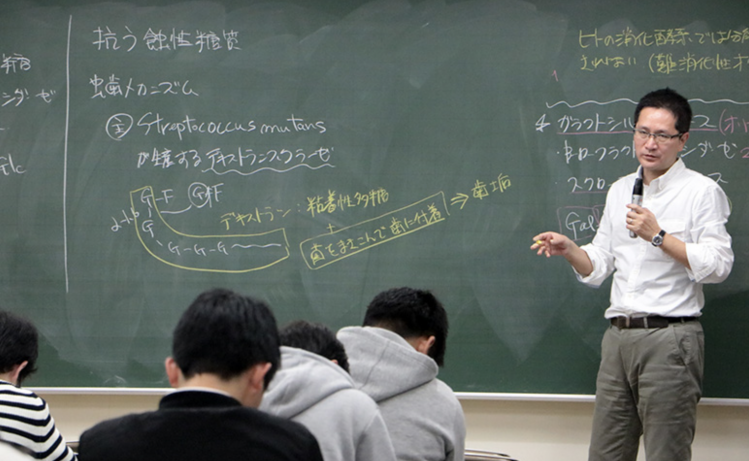 糖
ンダーゼ
Glc
抗う蝕性糖質
虫歯メカニズム
Streptococcus mutans
が生産するデキストランスクラーゼ
G-F
G
G-G-G
デキストラン:粘着性多糖
+
菌をまきこんで歯に付着
⇒歯垢
ヒトの消化酵素では分
されない(難消化性オ
ガラクトシル
ース(オ
フラクト
ダーゼ
スクロ
ス
Gal